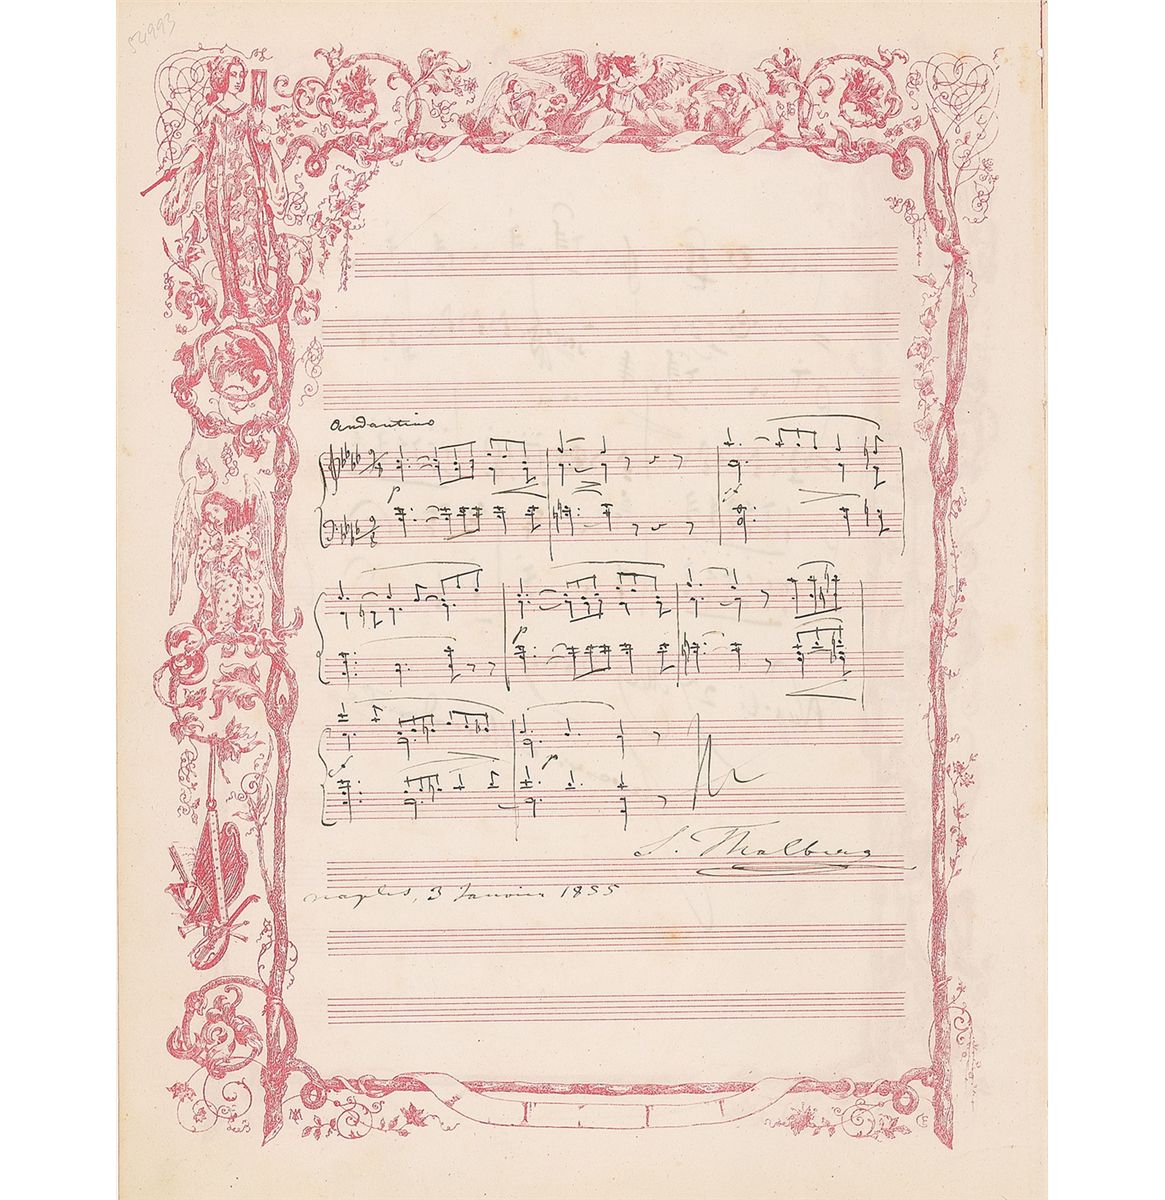 54993
Andantino
p
p
p
S. Thalberg
naples, 3 Janvier 1855